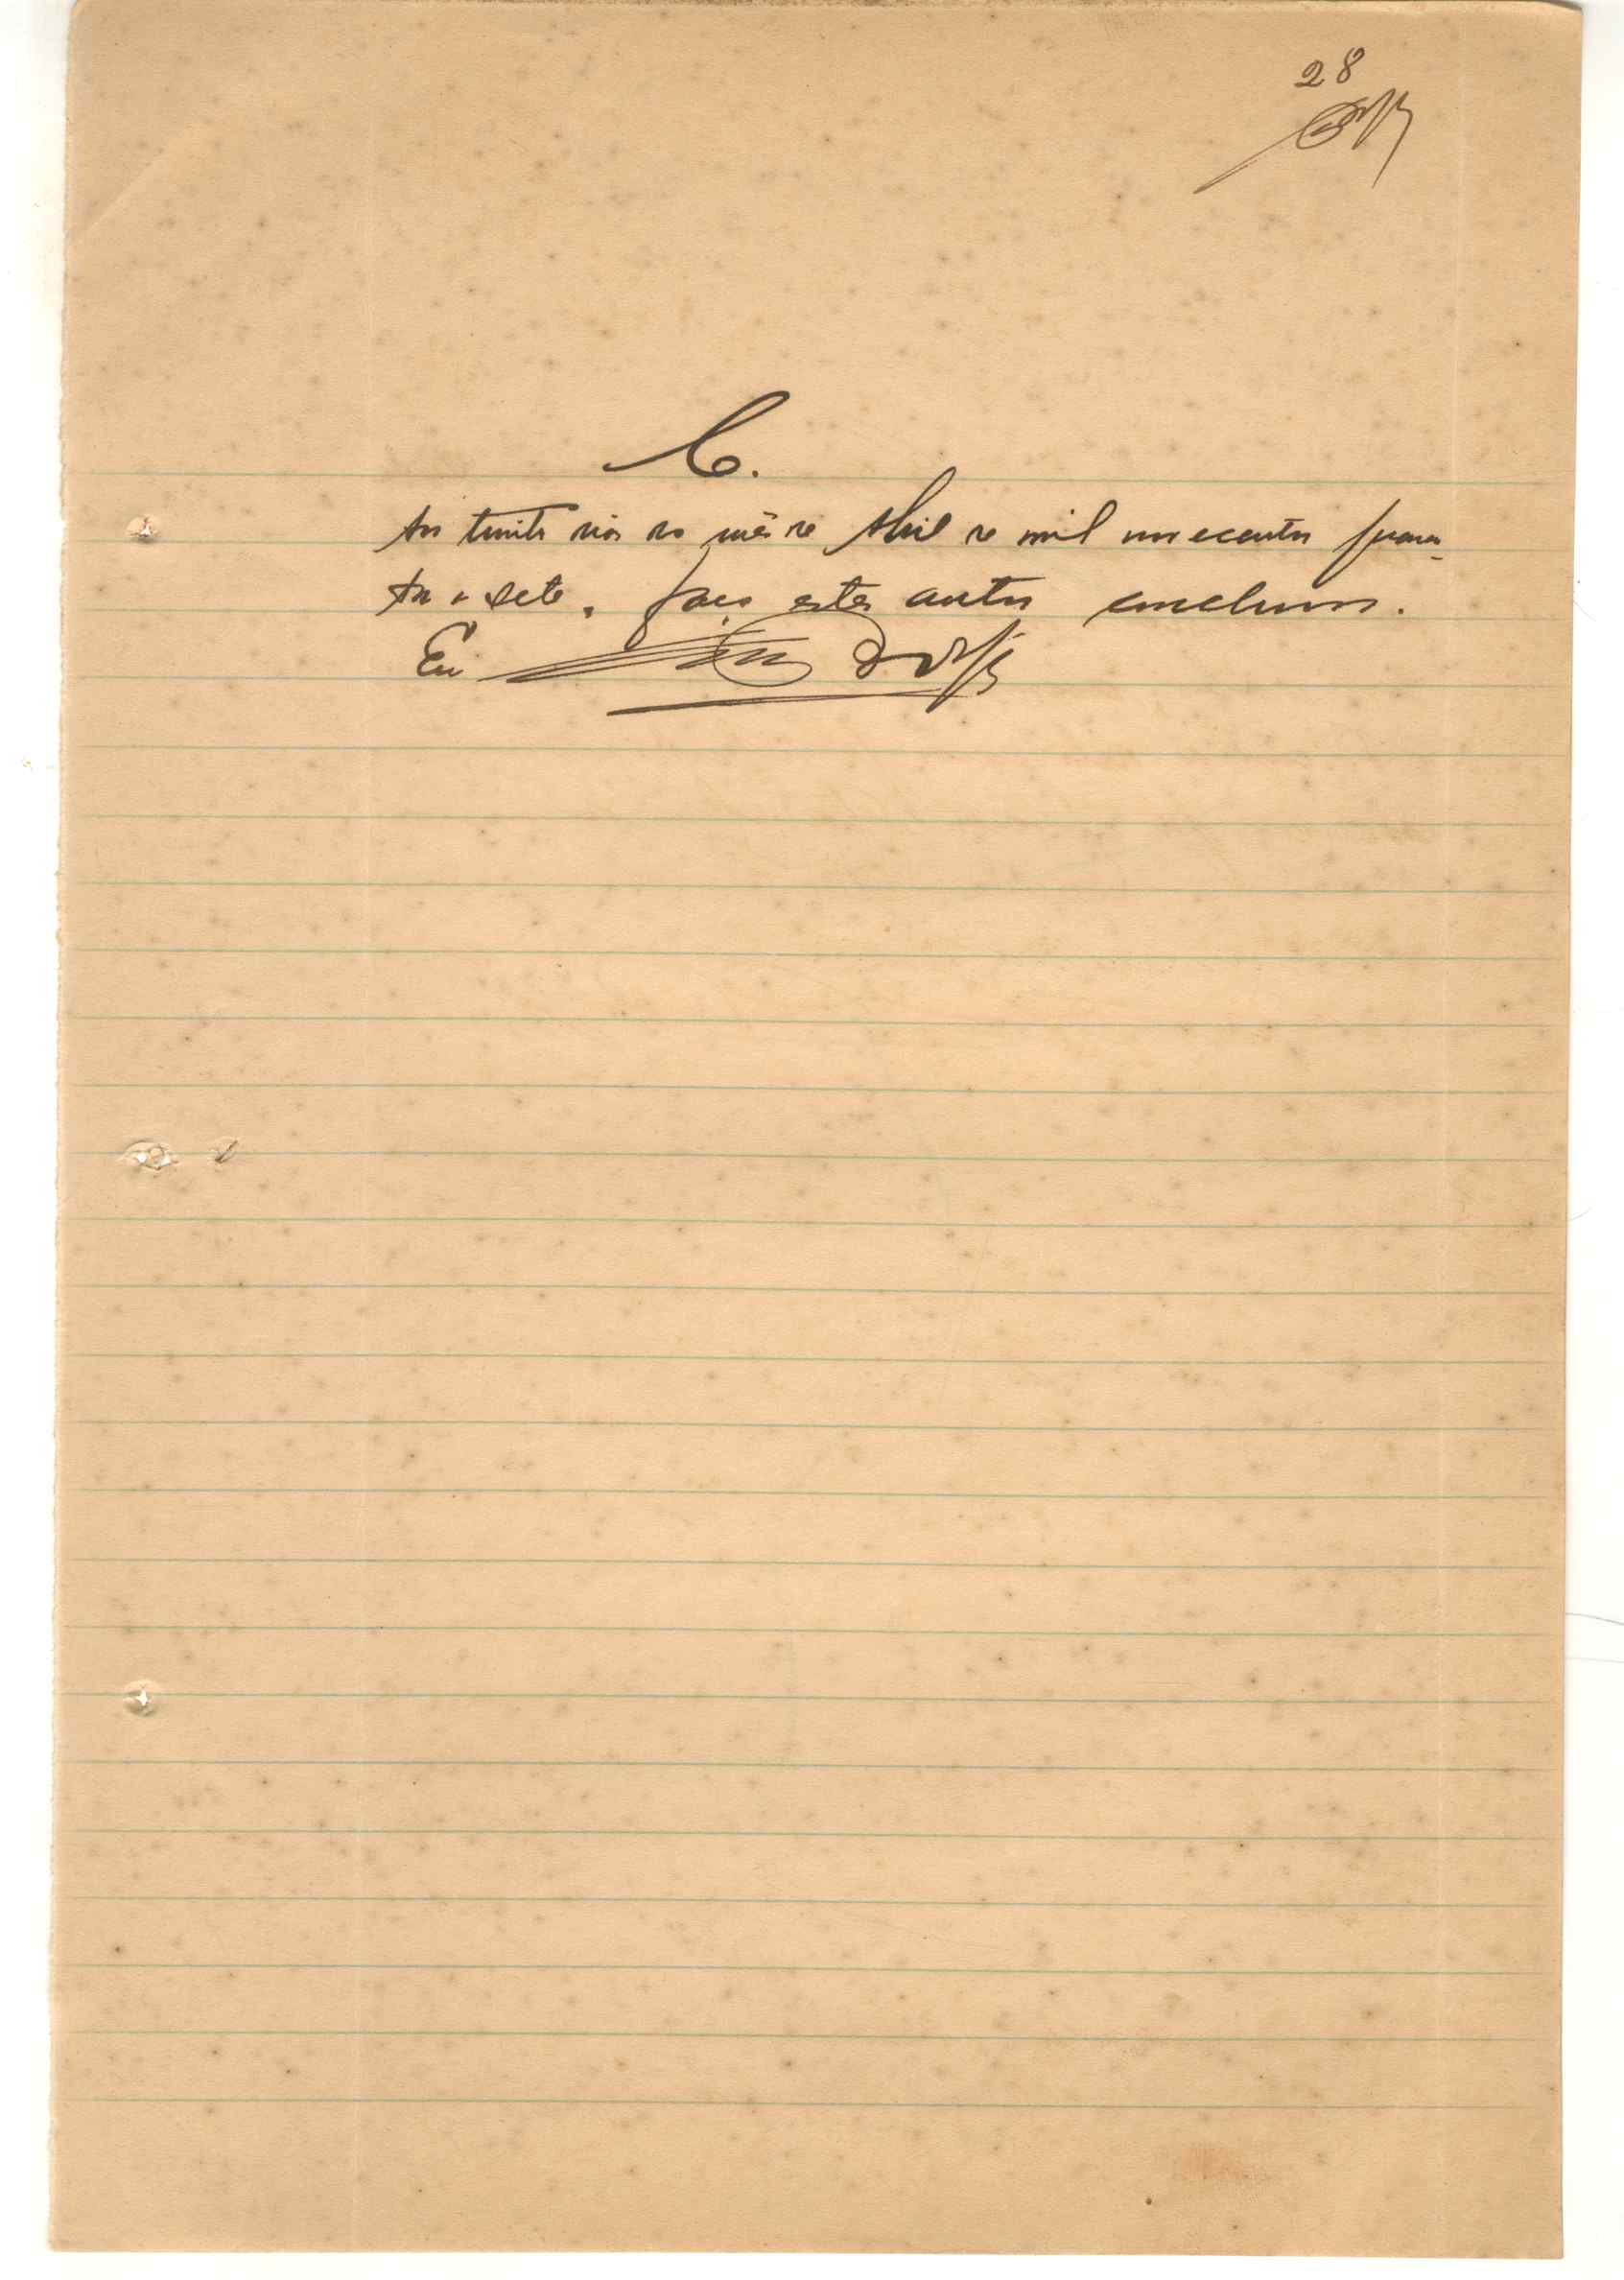 28
C.
Aos trinta dias do mês de Abril de mil novecentos quaren-
ta e sete, faço estes autos conclusos.
Eu